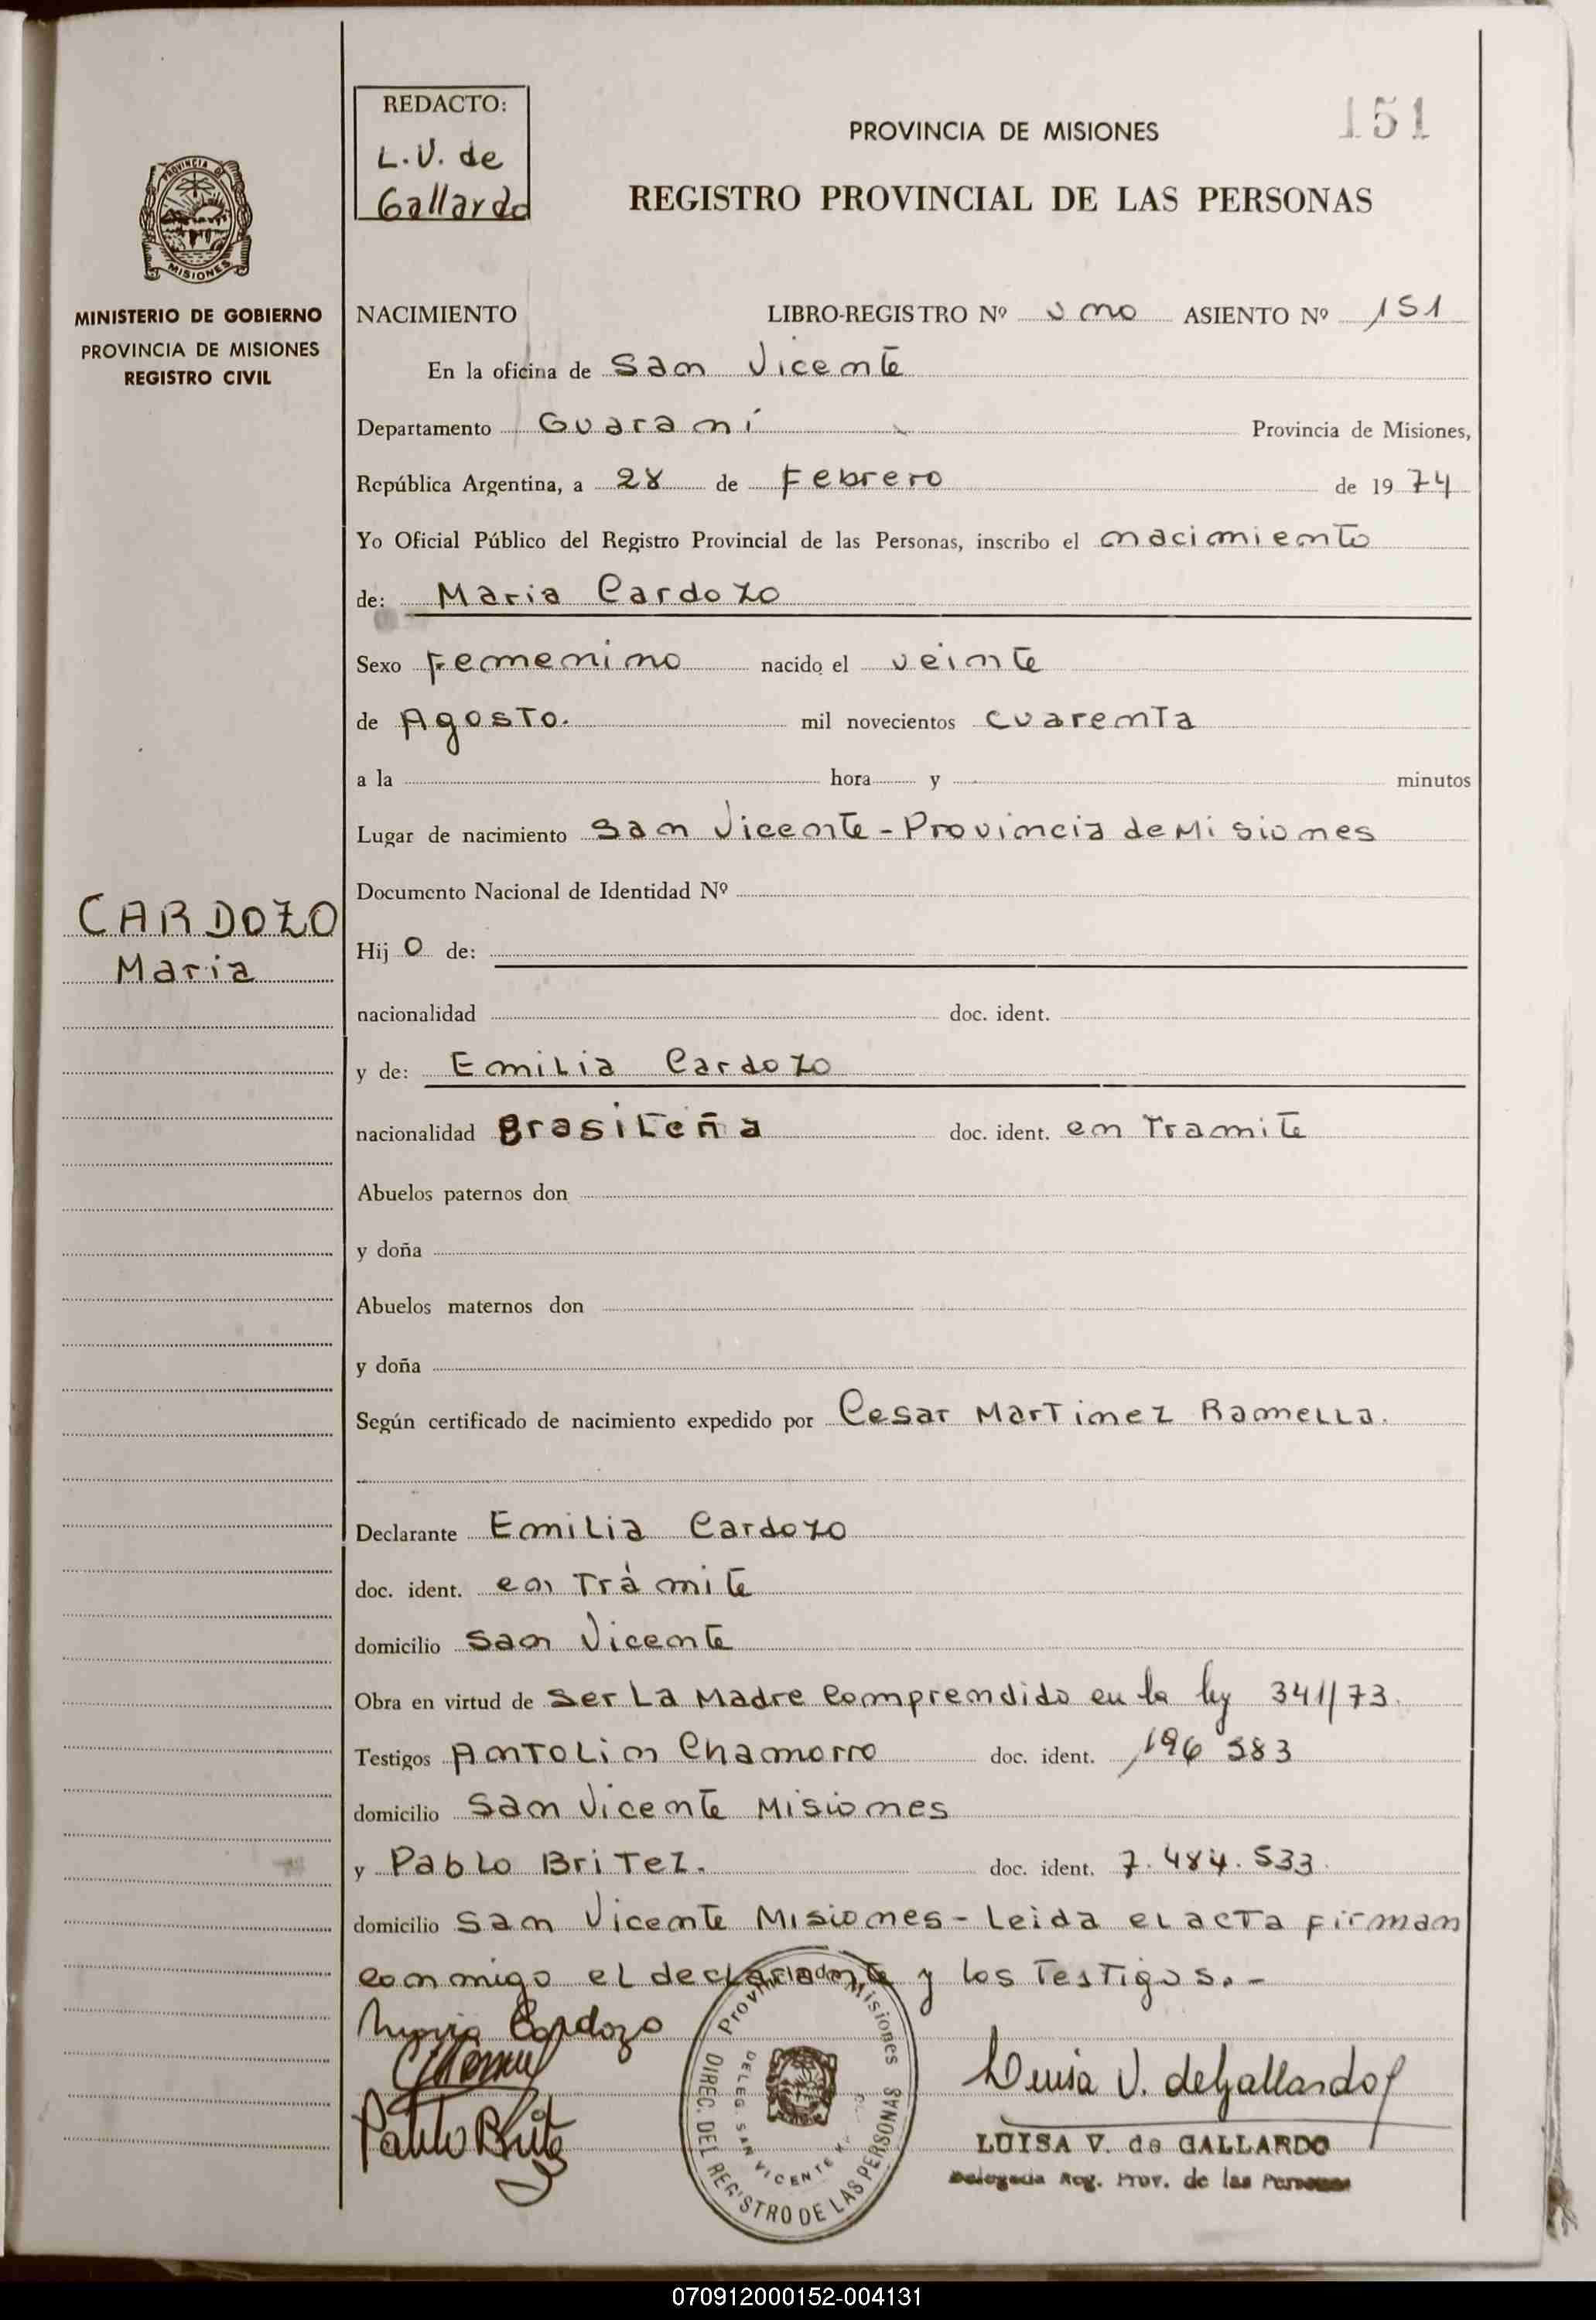 REDACTO:
L.V. de
Gallardo
PROVINCIA DE MISIONES
151
REGISTRO PROVINCIAL DE LAS PERSONAS
PROVINCIA DE
MISIONES
MINISTERIO DE GOBIERNO
PROVINCIA DE MISIONES
REGISTRO CIVIL
NACIMIENTO LIBRO-REGISTRO Nº uno ASIENTO Nº 151
En la oficina de San Vicente
Departamento Guaraní Provincia de Misiones,
República Argentina, a 28 de Febrero de 1974
Yo Oficial Público del Registro Provincial de las Personas, inscribo el nacimiento
de: Maria Cardozo
Sexo Femenino nacido el veinte
de Agosto. mil novecientos cuarenta
a la hora y minutos
Lugar de nacimiento San Vicente - Provincia de Misiones
Documento Nacional de Identidad Nº
CARDOZO
Maria
Hij o de:
nacionalidad doc. ident.
y de: Emilia Cardozo
nacionalidad Brasileña doc. ident. en Tramite
Abuelos paternos don
y doña
Abuelos maternos don
y doña
Según certificado de nacimiento expedido por Cesar Martinez Ramella.
Declarante Emilia Cardozo
doc. ident. en Trámite
domicilio San Vicente
Obra en virtud de Ser La Madre Comprendido en la ley 341/73.
Testigos Antolin Chamorro doc. ident. 196 583
domicilio San Vicente Misiones
y Pablo Britez. doc. ident. 7.484.533
domicilio San Vicente Misiones - Leida el acta firman
conmigo el declarante y los Testigos.-
Cardozo
Pablo Brite
Provincia de Misiones
DIREC. DEL REGISTRO DE LAS PERSONAS
DELEG. SAN VICENTE
Luisa V. de Gallardo
LUISA V. de GALLARDO
Delegada Reg. Prov. de las Personas
070912000152-004131